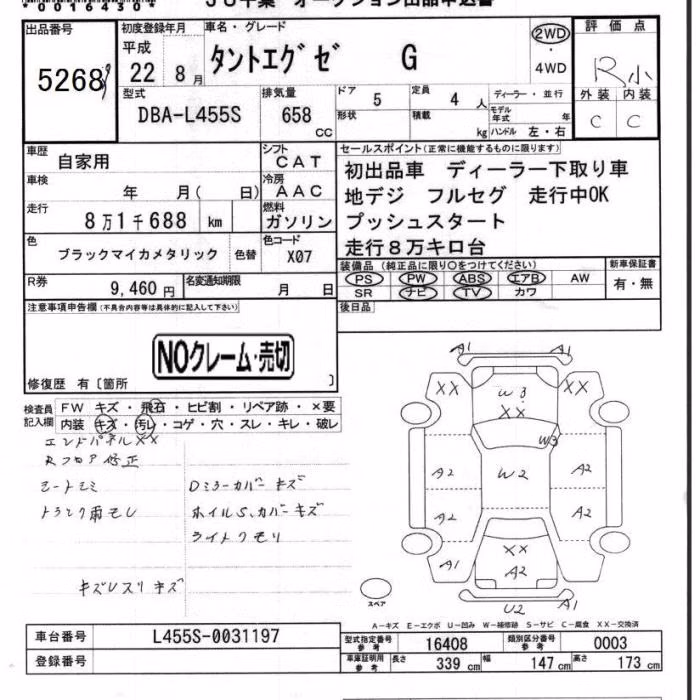 *00164530*
JU千葉 オークション出品申込書
出品番号 初度登録年月 車名・グレード 評価点
5268
平成 22 年 8 月 タントエグゼ G 2WD・4WD R小
型式 DBA-L455S 排気量 658 CC
ドア 5 定員 4 人 ディーラー・並行 外装 内装
形状 積載 kg モデル年式 年 ハンドル 左・右 C C
車歴 自家用 シフト CAT
セールスポイント(正常に機能するものに限ります)
初出品車 ディーラー下取り車
地デジ フルセグ 走行中OK
プッシュスタート
走行8万キロ台
車検 年 月( 日) 冷房 AAC
走行 8万1千688 km 燃料 ガソリン
色 ブラックマイカメタリック 色替 色コード X07
装備品(純正品に限り〇をつけてください) 新車保証書
PS PW ABS エアB AW 有・無
SR ナビ TV カワ
R券 9,460 円 名変通知期限 月 日
後日品
注意事項申告欄(不具合内容等は具体的に記入して下さい)
NOクレーム・売切
修復歴 有〔箇所 〕
検査員記入欄 FW キズ・飛石・ヒビ割・リペア跡・×要
内装 キズ・汚レ・コゲ・穴・スレ・キレ・破レ
エンドパネルXX
Rフロア修正
シートシミ Dミラーカバーキズ
トランク雨モレ ホイルS.カバーキズ
ライトクモリ
キズUスリキズ
A1 A1
XX W3 XX
XX
W3
A2 W2 A2
A2 A2
XX
A1 A2 A1
U2 A1
スペア
A−キズ E−エクボ U−凹み W−補修跡 S−サビ C−腐食 XX−交換済
車台番号 L455S-0031197
登録番号
型式指定番号 参考 16408 類別区分番号 参考 0003
車庫証明用 参考 長さ 339 cm 幅 147 cm 高さ 173 cm